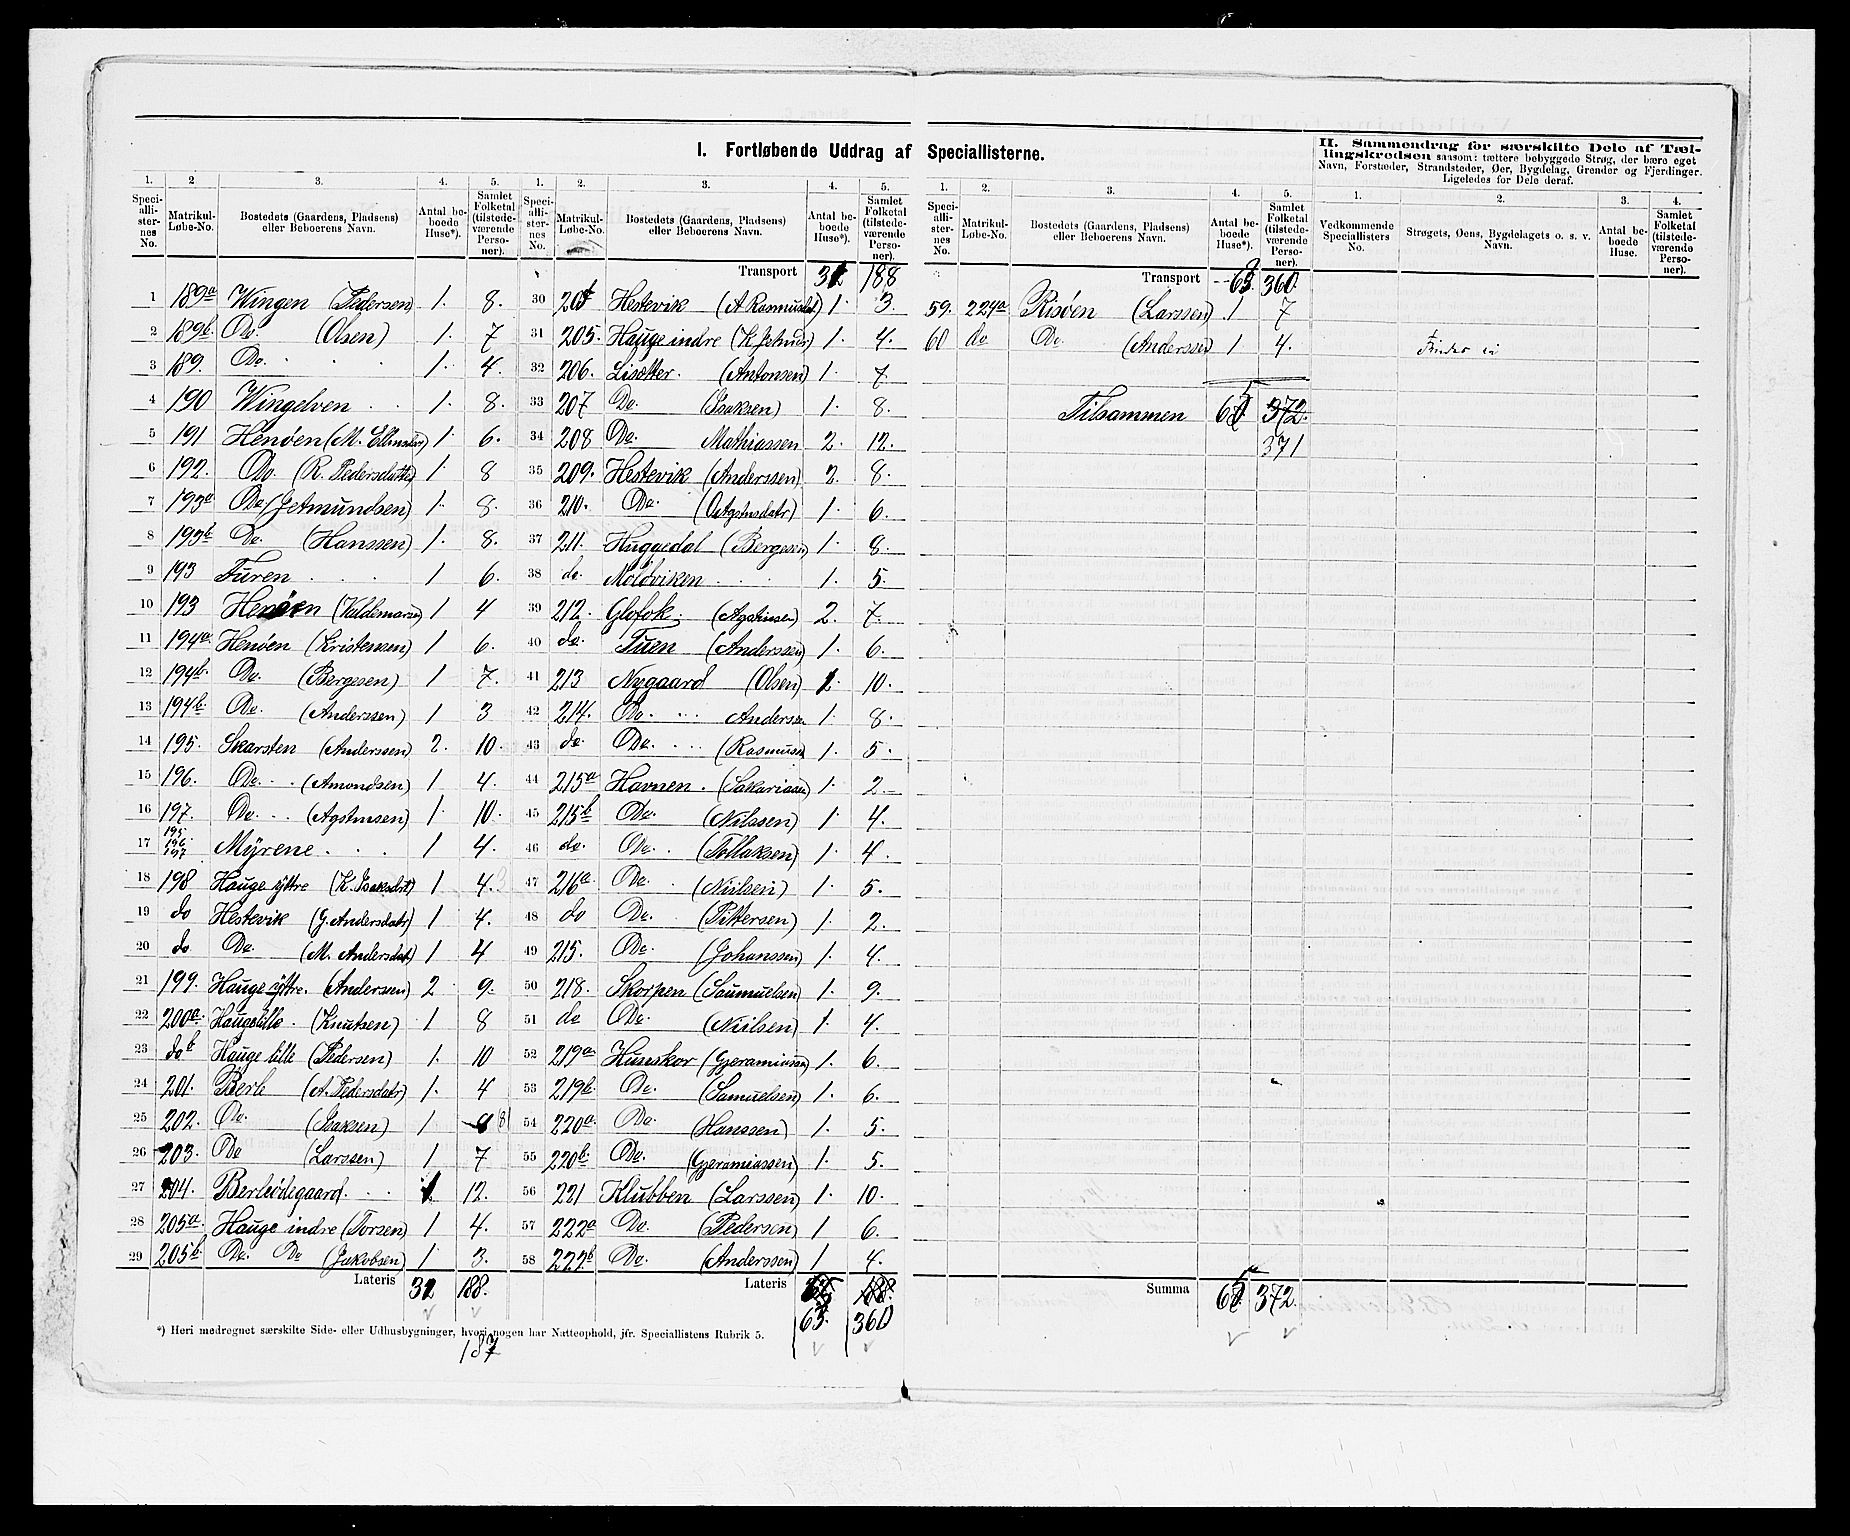 I. Fortløbende Uddrag af Speciallisterne.
II. Sammendrag for særskilte Dele af Tællingskredsen saasom: tættere bebyggede Strøg, der bære eget
Navn, Forstæder, Strandsteder, Øer, Bygdelag, Grender og Fjerdinger.
Ligeledes for Dele deraf.
1. 2 3. 4. 5.
Speciallisternes No. Matrikul-Løbe-No. Bostedets (Gaardens, Pladsens) eller Beboerens Navn. Antal beboede Huse*). Samlet Folketal (tilstedeværende Personer).
1 189a Wingen (Pedersen) 1. 8.
2 189b. Do. (Olsen) 1. 7
3 189. Do. 1. 4.
4 190 Wingelven 1. 8.
5 191 Henøen (M. 1. 6.
6 192. Do (R. Pedersdatter) 1. 8
7 193a Do (Getmundsen) 1. 8.
8 193b Do. (Hanssen) 1. 8.
9 193 Furen 1 6.
10 193 Henøen (Valdemarsen) 1 4
11 194a. Henøen (Kristensen) 1 6.
12 194b. Do. (Bergesen) 1 7.
13 194b. Do. (Anderssen) 1 3
14 195. Skarsten (Anderssen) 2. 10.
15 196. Do. (Amondsen) 1 4.
16 197. Do. (Agstinsen) 1. 10.
17 195 196 197 Myrene 1 4.
18 198 Hauge yttre (K. Isaksdtr) 1 4.
19 do Hestevik (G. Andersdatr) 1 4.
20 do Do. (M. Andersdat) 1 4
21 199. Hauge yttre. (Anderssen) 2 9.
22 200a. Haugelille. (Knutsen) 1 8
23 do b Hauge lille (Pedersen) 1. 10
24 201. Berle (A. Pedersdatr) 1. 4
25 202. Do. (Isaksen) 1 8
26 203. Do (Larssen) 1 7
27 204. Berleødegaard 1 12.
28 205a. Hauge indre (Torsen) 1 4.
29 205b. Do. Do (Jakobsen) 1. 3.
Lateris 32 188.
187
1. 2. 3. 4. 5.
Speciallisternes No. Matrikul-Løbe-No. Bostedets (Gaardens, Pladsens) eller Beboerens Navn. Antal beboede Huse*). Samlet Folketal (tilstedeværende Personer).
Transport 32 188
30 205 Hestevik (A Rasmusdt.) 1. 3
31 205. Hauge indre (K 1. 4.
32 206. Lisætter. (Antonsen) 1. 7
33 207 Do. (Isaksen) 1. 8.
34 208 Do. Mathiassen 2. 12.
35 209. Hestevik (Anderssen) 2. 8.
36 210. Do. 1. 6.
37 211. Huggedal (Bergesen) 1. 8.
38 do. Moldviken 1. 5.
39 212. Glofok. (Agstinsen) 2. 7.
40 do. Tuen (Anderssen) 1. 6.
41 213 Nygaard (Olsen) 2. 10.
42 214. Do. Anderssen 1. 8.
43 do. Do. (Rasmusen 1. 5.
44 215a Havnen. (Sakariasen) 1. 2.
45 215b Do. (Nilssen) 1. 4.
46 do. Do. (Tollaksen) 1. 4.
47 216a. Do. (Nielsen) 1. 5.
48 do Do. (Pittersen) 1. 2.
49 215. Do. (Johanssen) 1. 4.
50 218. Skorpen (Saumuelsen) 1. 9.
51 do Do. (Nielsen) 1. 4.
52 219a Huseskor (Gjeramiassen) 1. 6.
53 219b. Do. (Samuelsen) 1. 6.
54 220a. Do. (Hanssen) 1. 5.
55 220b. Do. (Gjeramiassen) 1. 5.
56 221 Klubben (Larssen) 1. 10.
57 222a Do. (Pedersen) 1 6.
58 222b Do. (Anderssen) 1 4.
Lateris 188.
63. 360
*) Heri medregnet særskilte Side- eller Udhusbygninger, hvori nogen har Natteophold, jfr. Speciallistens Rubrik 5.
1. 2. 3. 4. 5.
Speciallisternes No. Matrikul-Løbe-No. Bostedets (Gaardens, Pladsens) eller Beboerens Navn. Antal beboede Huse*). Samlet Folketal (tilstedeværende Personer).
Transport 63. 360.
59. 224a Risöen (Larssen) 1 7
60 do Do. (Anderssen 1 4.
Tilsammen 65 372.
371
Summa 65 372.
1. 2. 3. 4.
Vedkommende Speciallisters No. Strøgets, Øens, Bygdelagets o. s. v. Navn. Antal beboede Huse. Samlet Folketal (tilstedeværende Personer).